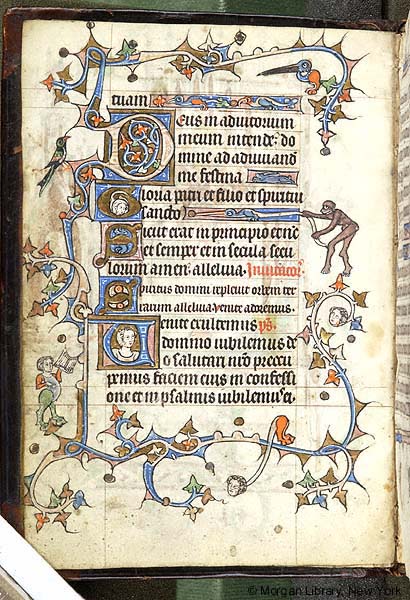 tuam
Deus in adiutorium
meum intende: do
mine ad adiuuand
me festina
Gloria patri et filio et spiritu
sancto
Sicut erat in principio et nc
et semper et in secula secu
lorum amen: alleluia. Inuitator
Spiritus domini repleuit orbem ter
rarum alleluia. Venite adoremus.
Venite exultemus ps
domino iubilemus de
o salutari nro preocu
pemus faciem eius in confessi
one et in psalmis iubilemus ei.
© Morgan Library, New York